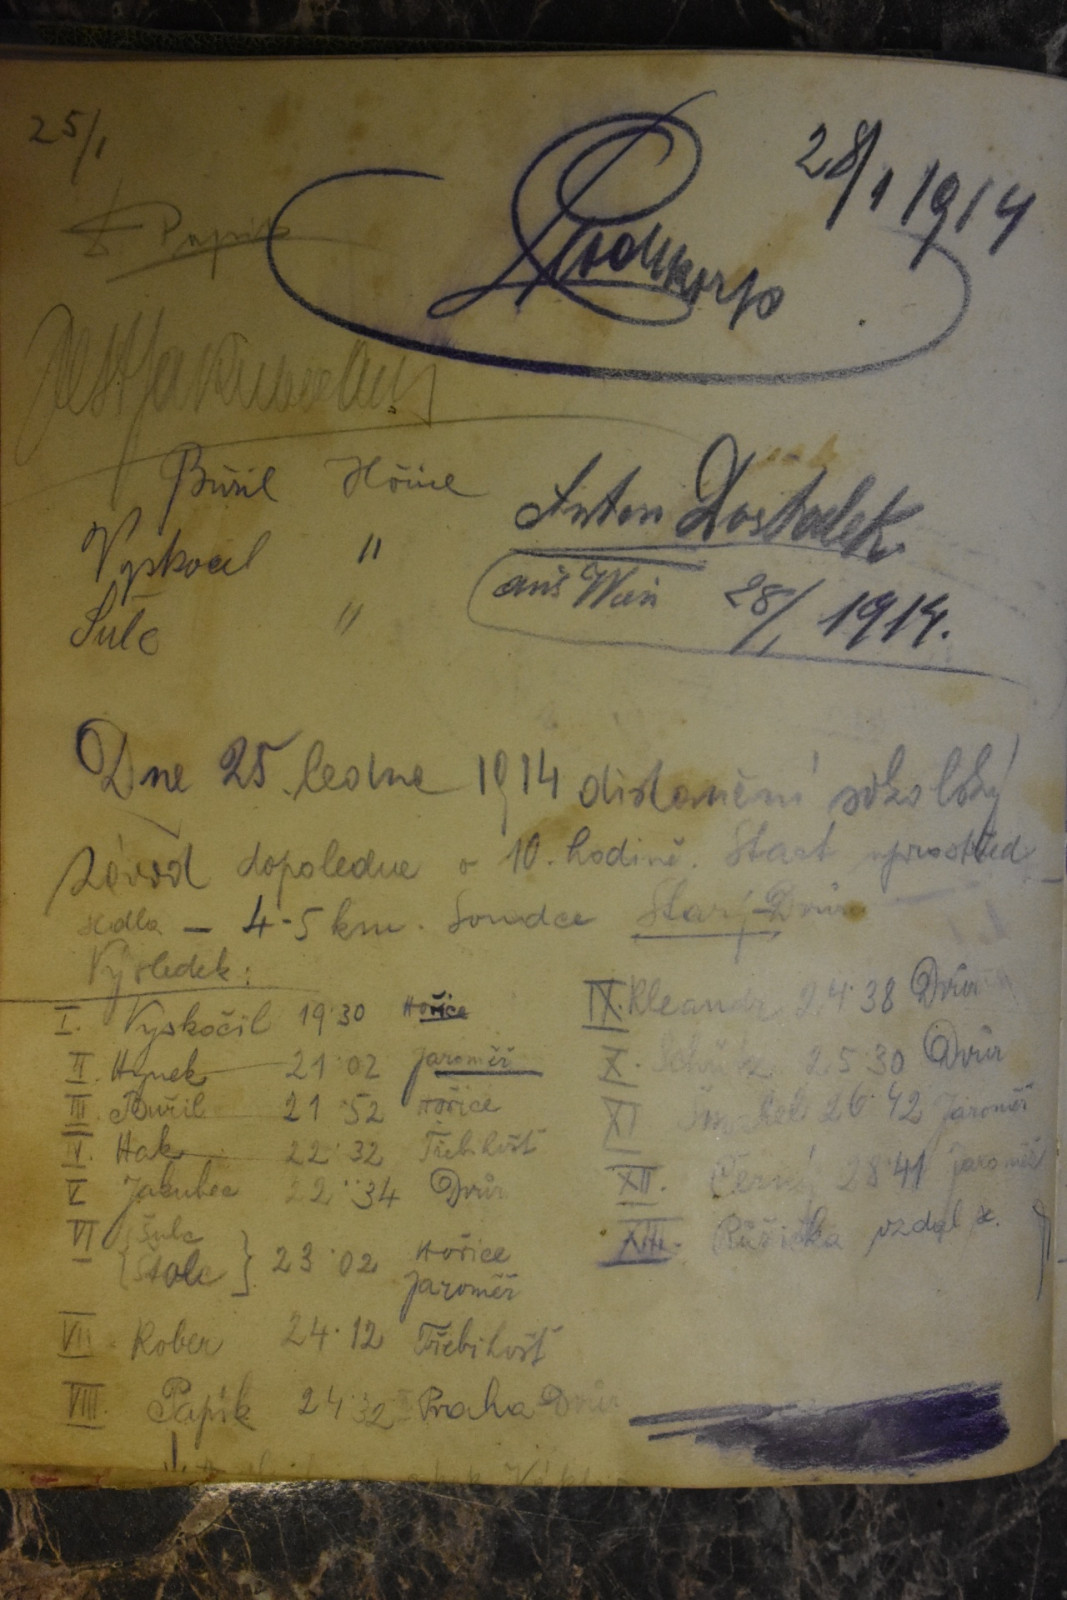 25/1
28/1 1914
Papík
Buřil Hořice
Vyskočil "
Šulc "
Anton Dostalek
aus Wien 28/1 1914.
Dne 25. ledna 1914 distanční sokolský
závod dopoledne o 10. hodině. Start uprostřed
sedla – 4-5 km. Soudce Starý-Dvůr
Výsledek:
I. Vyskočil 19·30 Hořice
II. Hynek 21·02 Jaroměř
III. Buřil 21·52 Hořice
IV. Hak 22·32 Třebihošť
V Jakubec 22·34 Dvůr
VI Šulc
Stole } 23·02 Hořice
Jaroměř
VII. Rober 24·12 Třebihošť
VIII. Papík 24·32 Praha Dvůr
IX. Kleandr 24·38 Dvůr
X. 25·30 Dvůr
XI 26·42 Jaroměř
XII. Černý 28·41 Jaroměř
XIII. Růžička vzdal se.